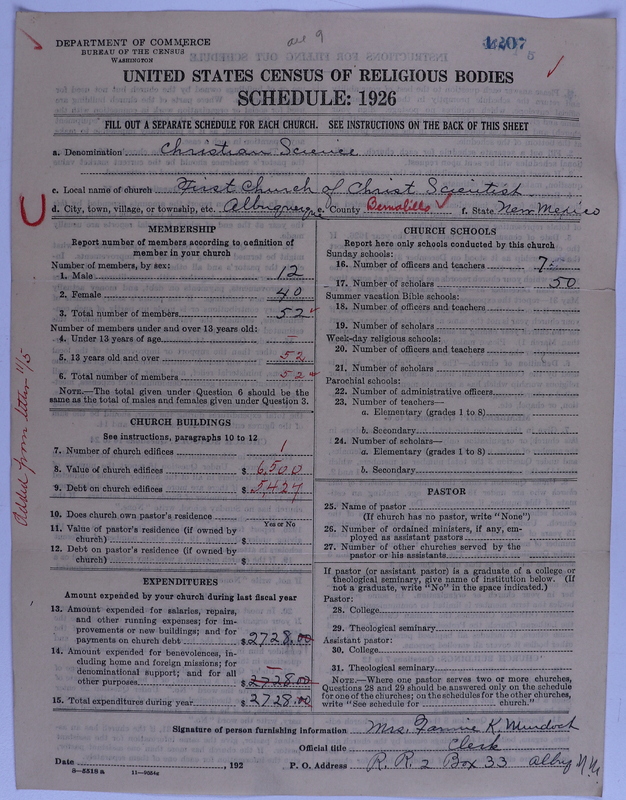 DEPARTMENT OF COMMERCE
BUREAU OF THE CENSUS
WASHINGTON
4207
UNITED STATES CENSUS OF RELIGIOUS BODIES
SCHEDULE: 1926
FILL OUT A SEPARATE SCHEDULE FOR EACH CHURCH. SEE INSTRUCTIONS ON THE BACK OF THIS SHEET
a. Denomination Christian Science
c. Local name of church First Church of Christ Scientist
d. City, town, village, or township, etc. Albuquerque County Bernalillo f. State New Mexico
MEMBERSHIP
Report number of members according to definition of
member in your church
Number of members, by sex:
1. Male 12
2. Female 40
3. Total number of members 52
Number of members under and over 13 years old:
4. Under 13 years of age –
5. 13 years old and over 52
6. Total number of members 52
NOTE.—The total given under Question 6 should be
same as the total of males and females given under Question 3.
CHURCH BUILDINGS
See instructions, paragraphs 10 to 12
7. Number of church edifices 1
8. Value of church edifices $ 6,500
9. Debt on church edifices $ 5,427
10. Does church own pastor's residence
Yes or No
11. Value of pastor's residence (if owned by
church) $
12. Debt on pastor's residence (if owned by
church) $
EXPENDITURES
Amount expended by your church during last fiscal year
13. Amount expended for salaries, repairs,
and other running expenses; for im-
provements or new buildings; and for
payments on church debt $ 2728.00
14. Amount expended for benevolences, in-
cluding home and foreign missions; for
denominational support; and for all
other purposes $ 2728.00 –
15. Total expenditures during year $ 2728.00
CHURCH SCHOOLS
Report here only schools conducted by this church
Sunday schools:
16. Number of officers and teachers 7
17. Number of scholars 50
Summer vacation Bible schools:
18. Number of officers and teachers
19. Number of scholars
Week-day religious schools:
20. Number of officers and teachers
21. Number of scholars
Parochial schools:
22. Number of administrative officers
23. Number of teachers—
a. Elementary (grades 1 to 8)
b. Secondary
24. Number of scholars—
a. Elementary (grades 1 to 8)
b. Secondary
PASTOR
25. Name of pastor
(If church has no pastor, write "None")
26. Number of ordained ministers, if any, em-
ployed as assistant pastors
27. Number of other churches served by the
pastor or his assistants
If pastor (or assistant pastor) is a graduate of a college or
theological seminary, give name of institution below. (If
not a graduate, write "No" in the space indicated.)
Pastor:
28. College
29. Theological seminary
Assistant pastor:
30. College
31. Theological seminary
NOTE.—Where one pastor serves two or more churches,
Questions 28 and 29 should be answered only on the schedule
for one of the churches; on the schedules for the other churches,
write "See schedule for church."
Signature of person furnishing information Mrs. Fannie K. Murdoch
Official title Clerk
Date , 192 P. O. Address R. R. 2 Box 33 Albuq N M.
8—5518 a 11—9034a
Added from letter 11/5